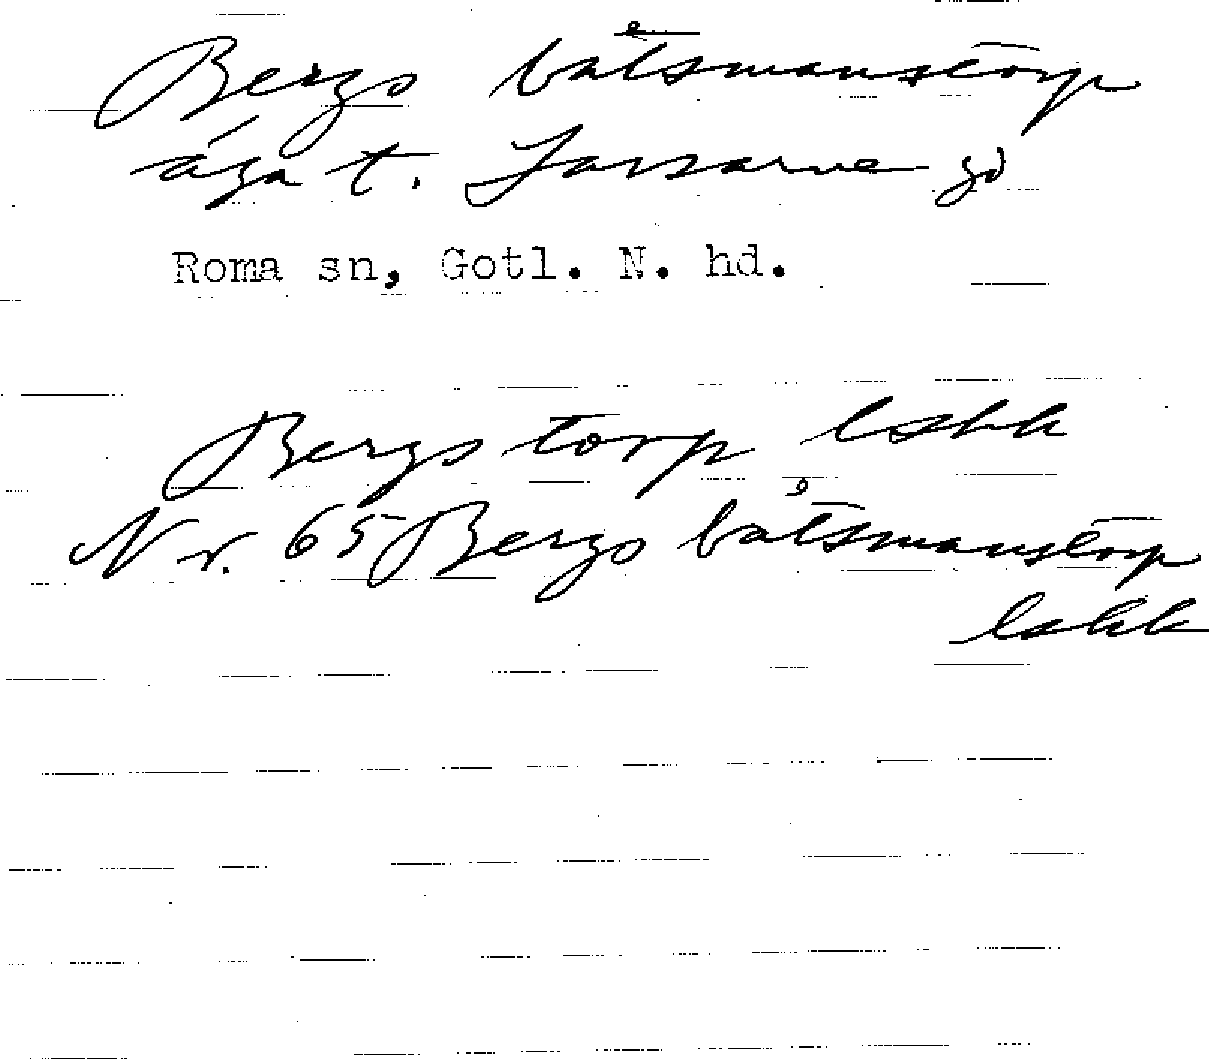 Bergs båtsmanstorp
äga t. Tassarve gd
Roma sn, Gotl. N. hd.
Bergs torp, lskk
Nr. 65 Bergs båtsmanstorp
lskk